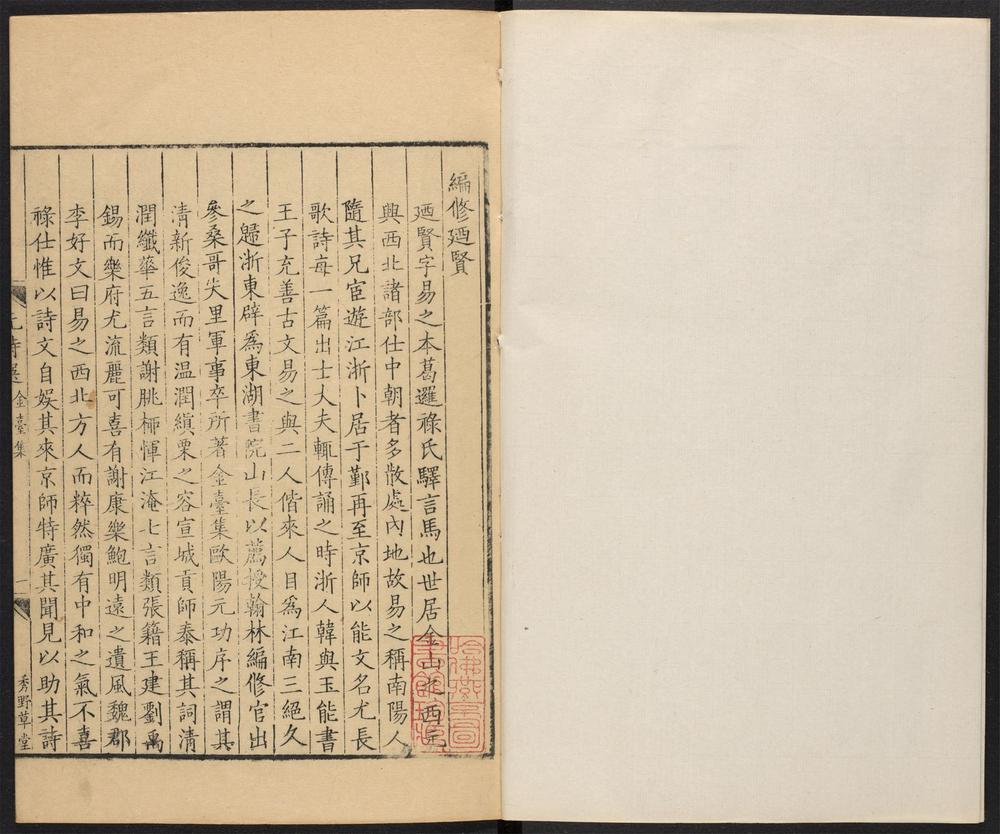 編修廼賢
廼賢字易之本葛邏祿氏驛言馬也世居金山之西元
興西北諸部仕中朝者多散處內地故易之稱南陽人
隨其兄宦遊江浙卜居于鄞再至京師以能文名尤長
歌詩每一篇出士大夫輒傳誦之時浙人韓與玉能書
王子充善古文易之與二人偕來人目為江南三絕久
之歸浙東辟為東湖書院山長以薦授翰林編修官出
參桑哥失里軍事卒所著金臺集歐陽元功序之謂其
清新俊逸而有温潤縝栗之容宣城貢師泰稱其詞清
潤纖華五言類謝朓柳惲江淹七言類張籍王建劉禹
錫而樂府尤流麗可喜有謝康樂鮑明遠之遺風魏郡
李好文曰易之西北方人而粹然獨有中和之氣不喜
祿仕惟以詩文自娛其來京師特廣其聞見以助其詩
元詩選 金臺集
一
秀野草堂
哈佛燕京圖
書館珍藏